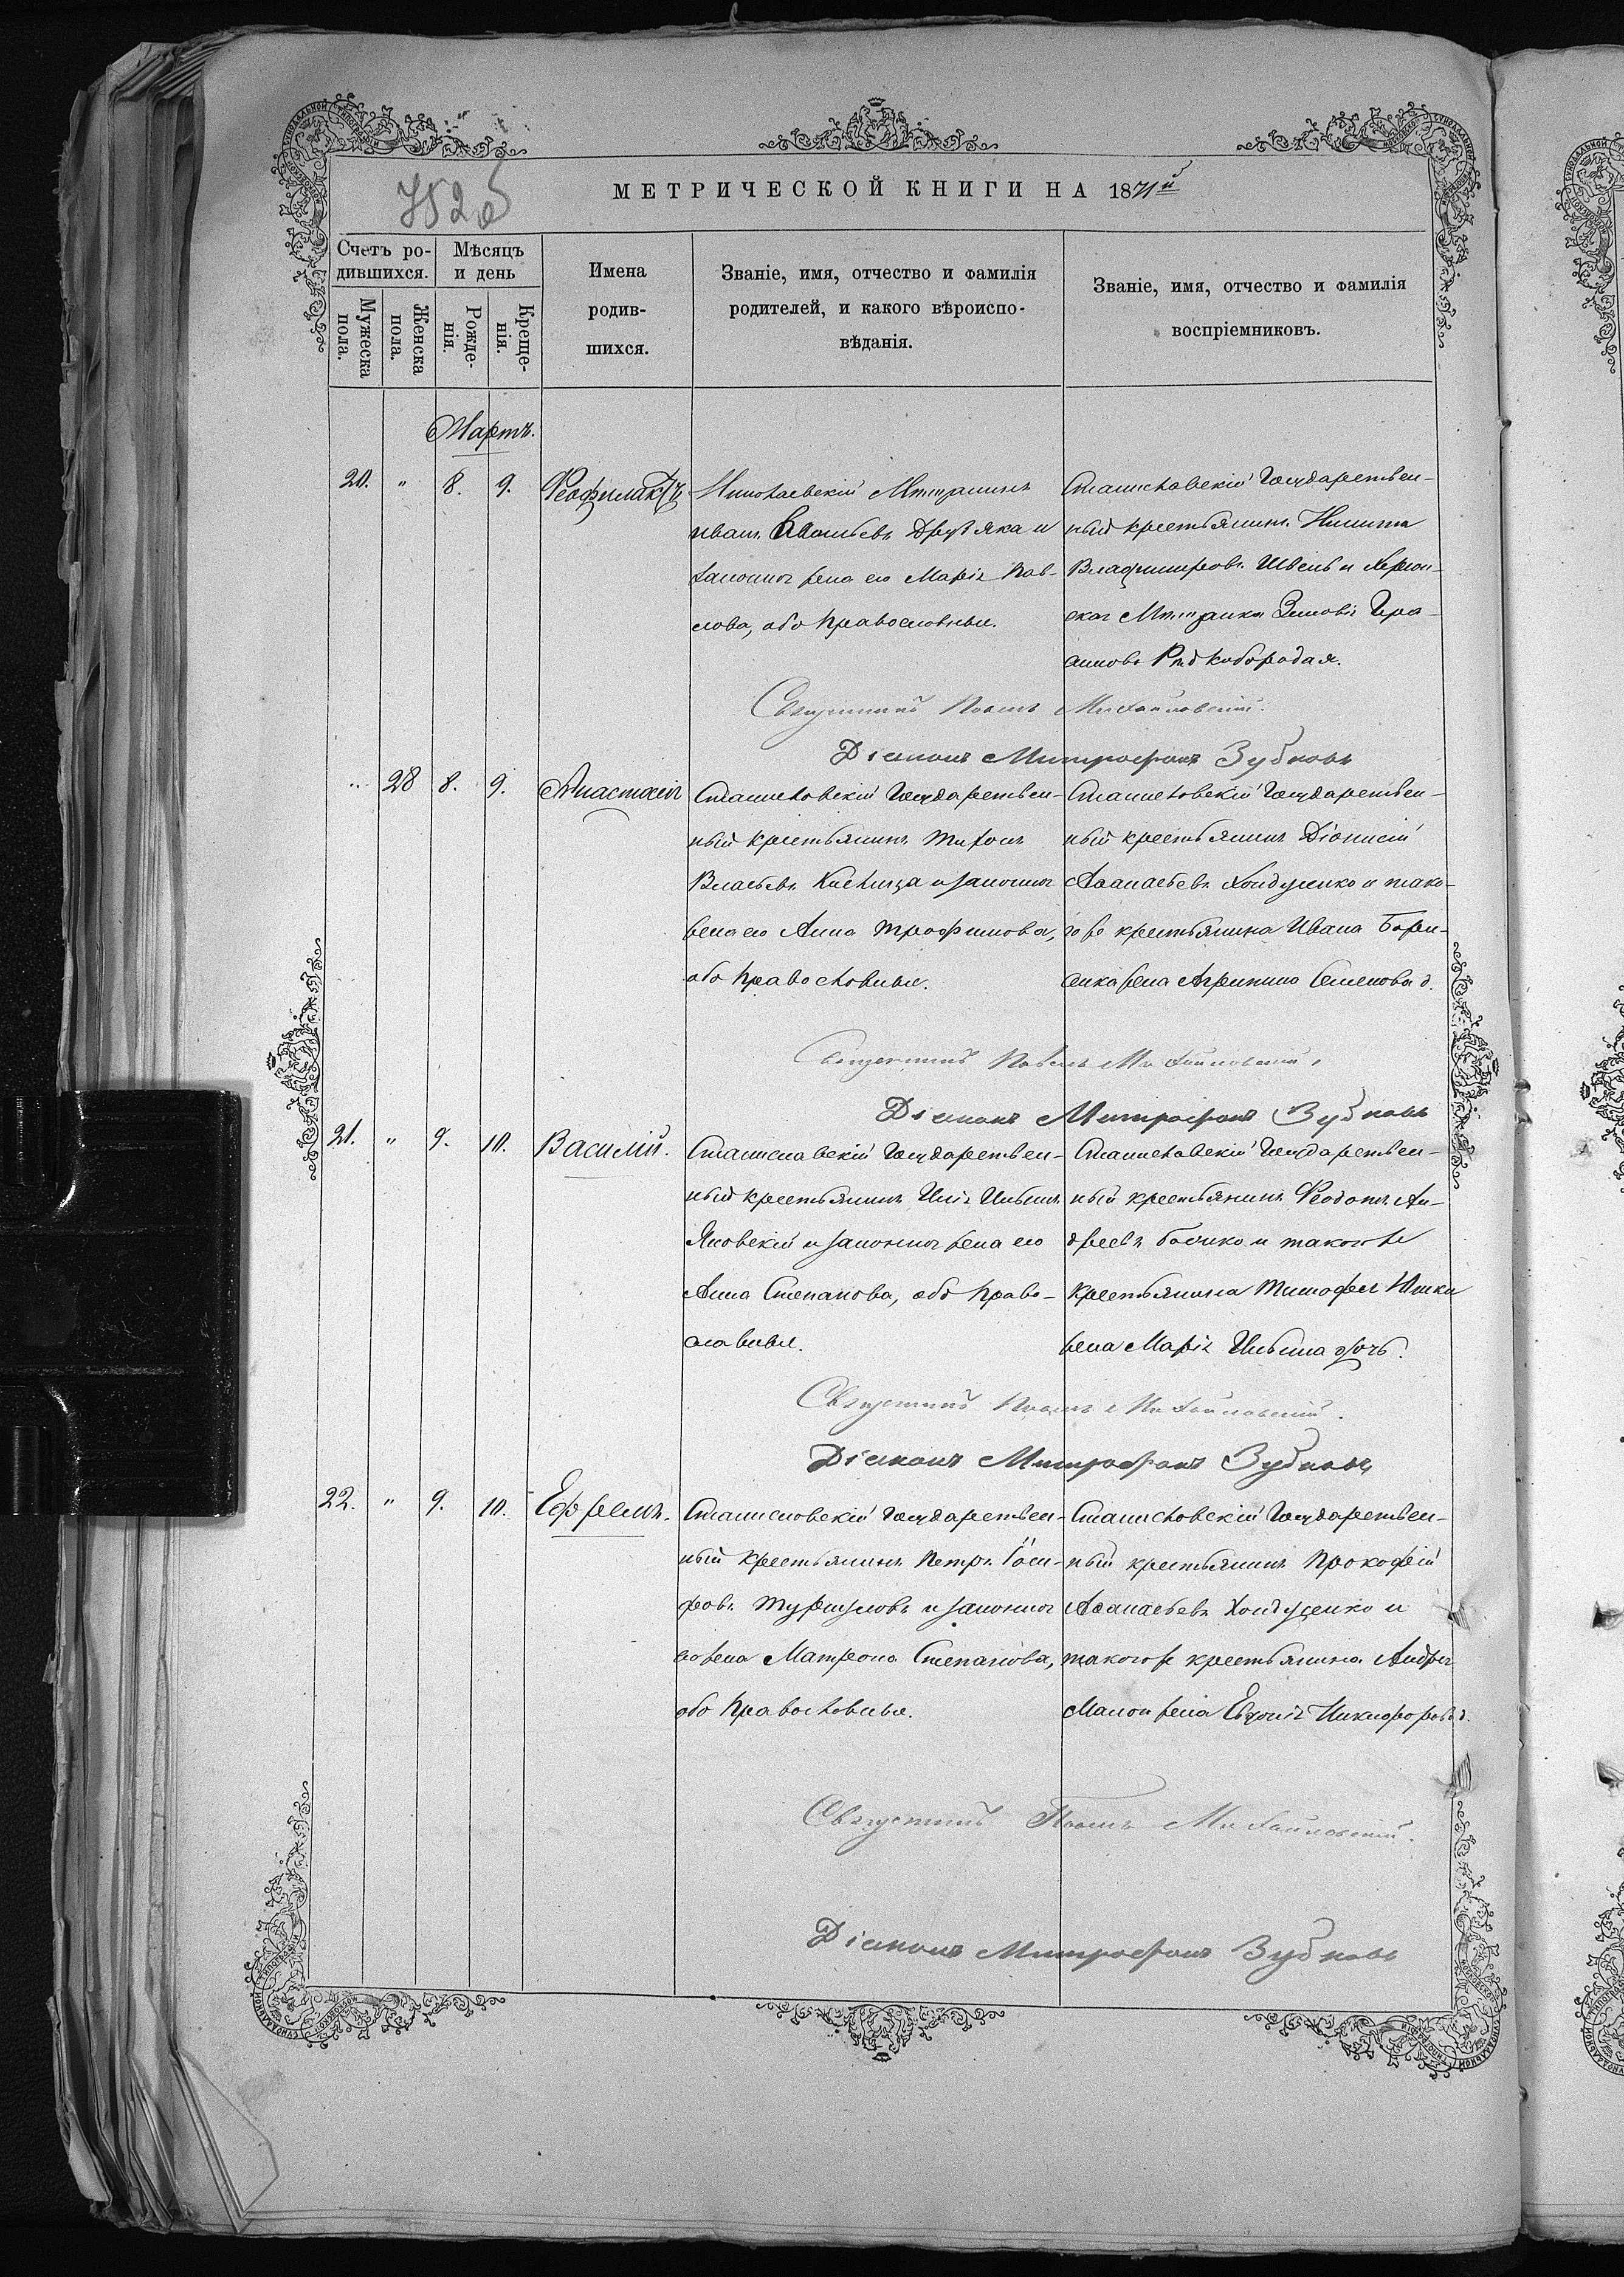 752 об
МЕТРИЧЕСКОЙ КНИГИ НА 1871й
Счетъ ро-
дившихся.
Мѣсяцъ
и день
Мужеска
пола.
Женска
пола.
Рожде-
нія.
Креще-
нія.
Имена
родив-
шихся.
Званіе, имя, отчество и фамилія
родителей, и какого вѣроиспо-
вѣданія.
Званіе, имя, отчество и фамилія
воспріемниковъ.
Мартъ.
20. " 8. 9. Феофилактъ
Николаевскій Мѣщанинъ
Иванъ Друзяка и
законная жена его Марія Пав-
лова, оба православные.
Станиславскій Государствен-
ный крестьянинъ Никита
Владимировъ Швецъ и Херсон-
ская Мѣщанка Зиновія
Рѣдкобородая.
Священникъ Павелъ Михайловскій.
Діаконъ Митрофанъ Зубковъ
" 28 8. 9. Анастасія
Станиславскій Государствен-
ный крестьянинъ Тихонъ
Власьевъ и законная
жена его Анна Трофимова,
оба православные.
Станиславскій Государствен-
ный крестьянинъ Діонисій
Аѳанасьевъ Хондусенко и тако-
го же крестьянина Ивана Бори-
сенка жена Агрипина Семенова д.
Священникъ Павелъ Михайловскій.
Діаконъ Митрофанъ Зубковъ
21. " 9. 10. Василій.
Станиславскій Государствен-
ный крестьянинъ Илія Ильинъ
Яновскій и законная жена его
Анна Степанова, оба право-
славные.
Станиславскій Государствен-
ный крестьянинъ Феодотъ Ан-
дреевъ и такого же
крестьянина Тимофея
жена Марія Ильина дочь.
Священникъ Павелъ Михайловскій.
Діаконъ Митрофанъ Зубковъ
22. " 9. 10. Ефремъ.
Станиславскій Государствен-
ный крестьянинъ Петръ Іоси-
фовъ и законная
его жена Матрона Степанова,
оба православные.
Станиславскій Государствен-
ный крестьянинъ Прокофій
Аѳанасьевъ Хондусенко и
такого же крестьянина Андрея
жена Никифорова д.
Священникъ Павелъ Михайловскій.
Діаконъ Митрофанъ Зубковъ